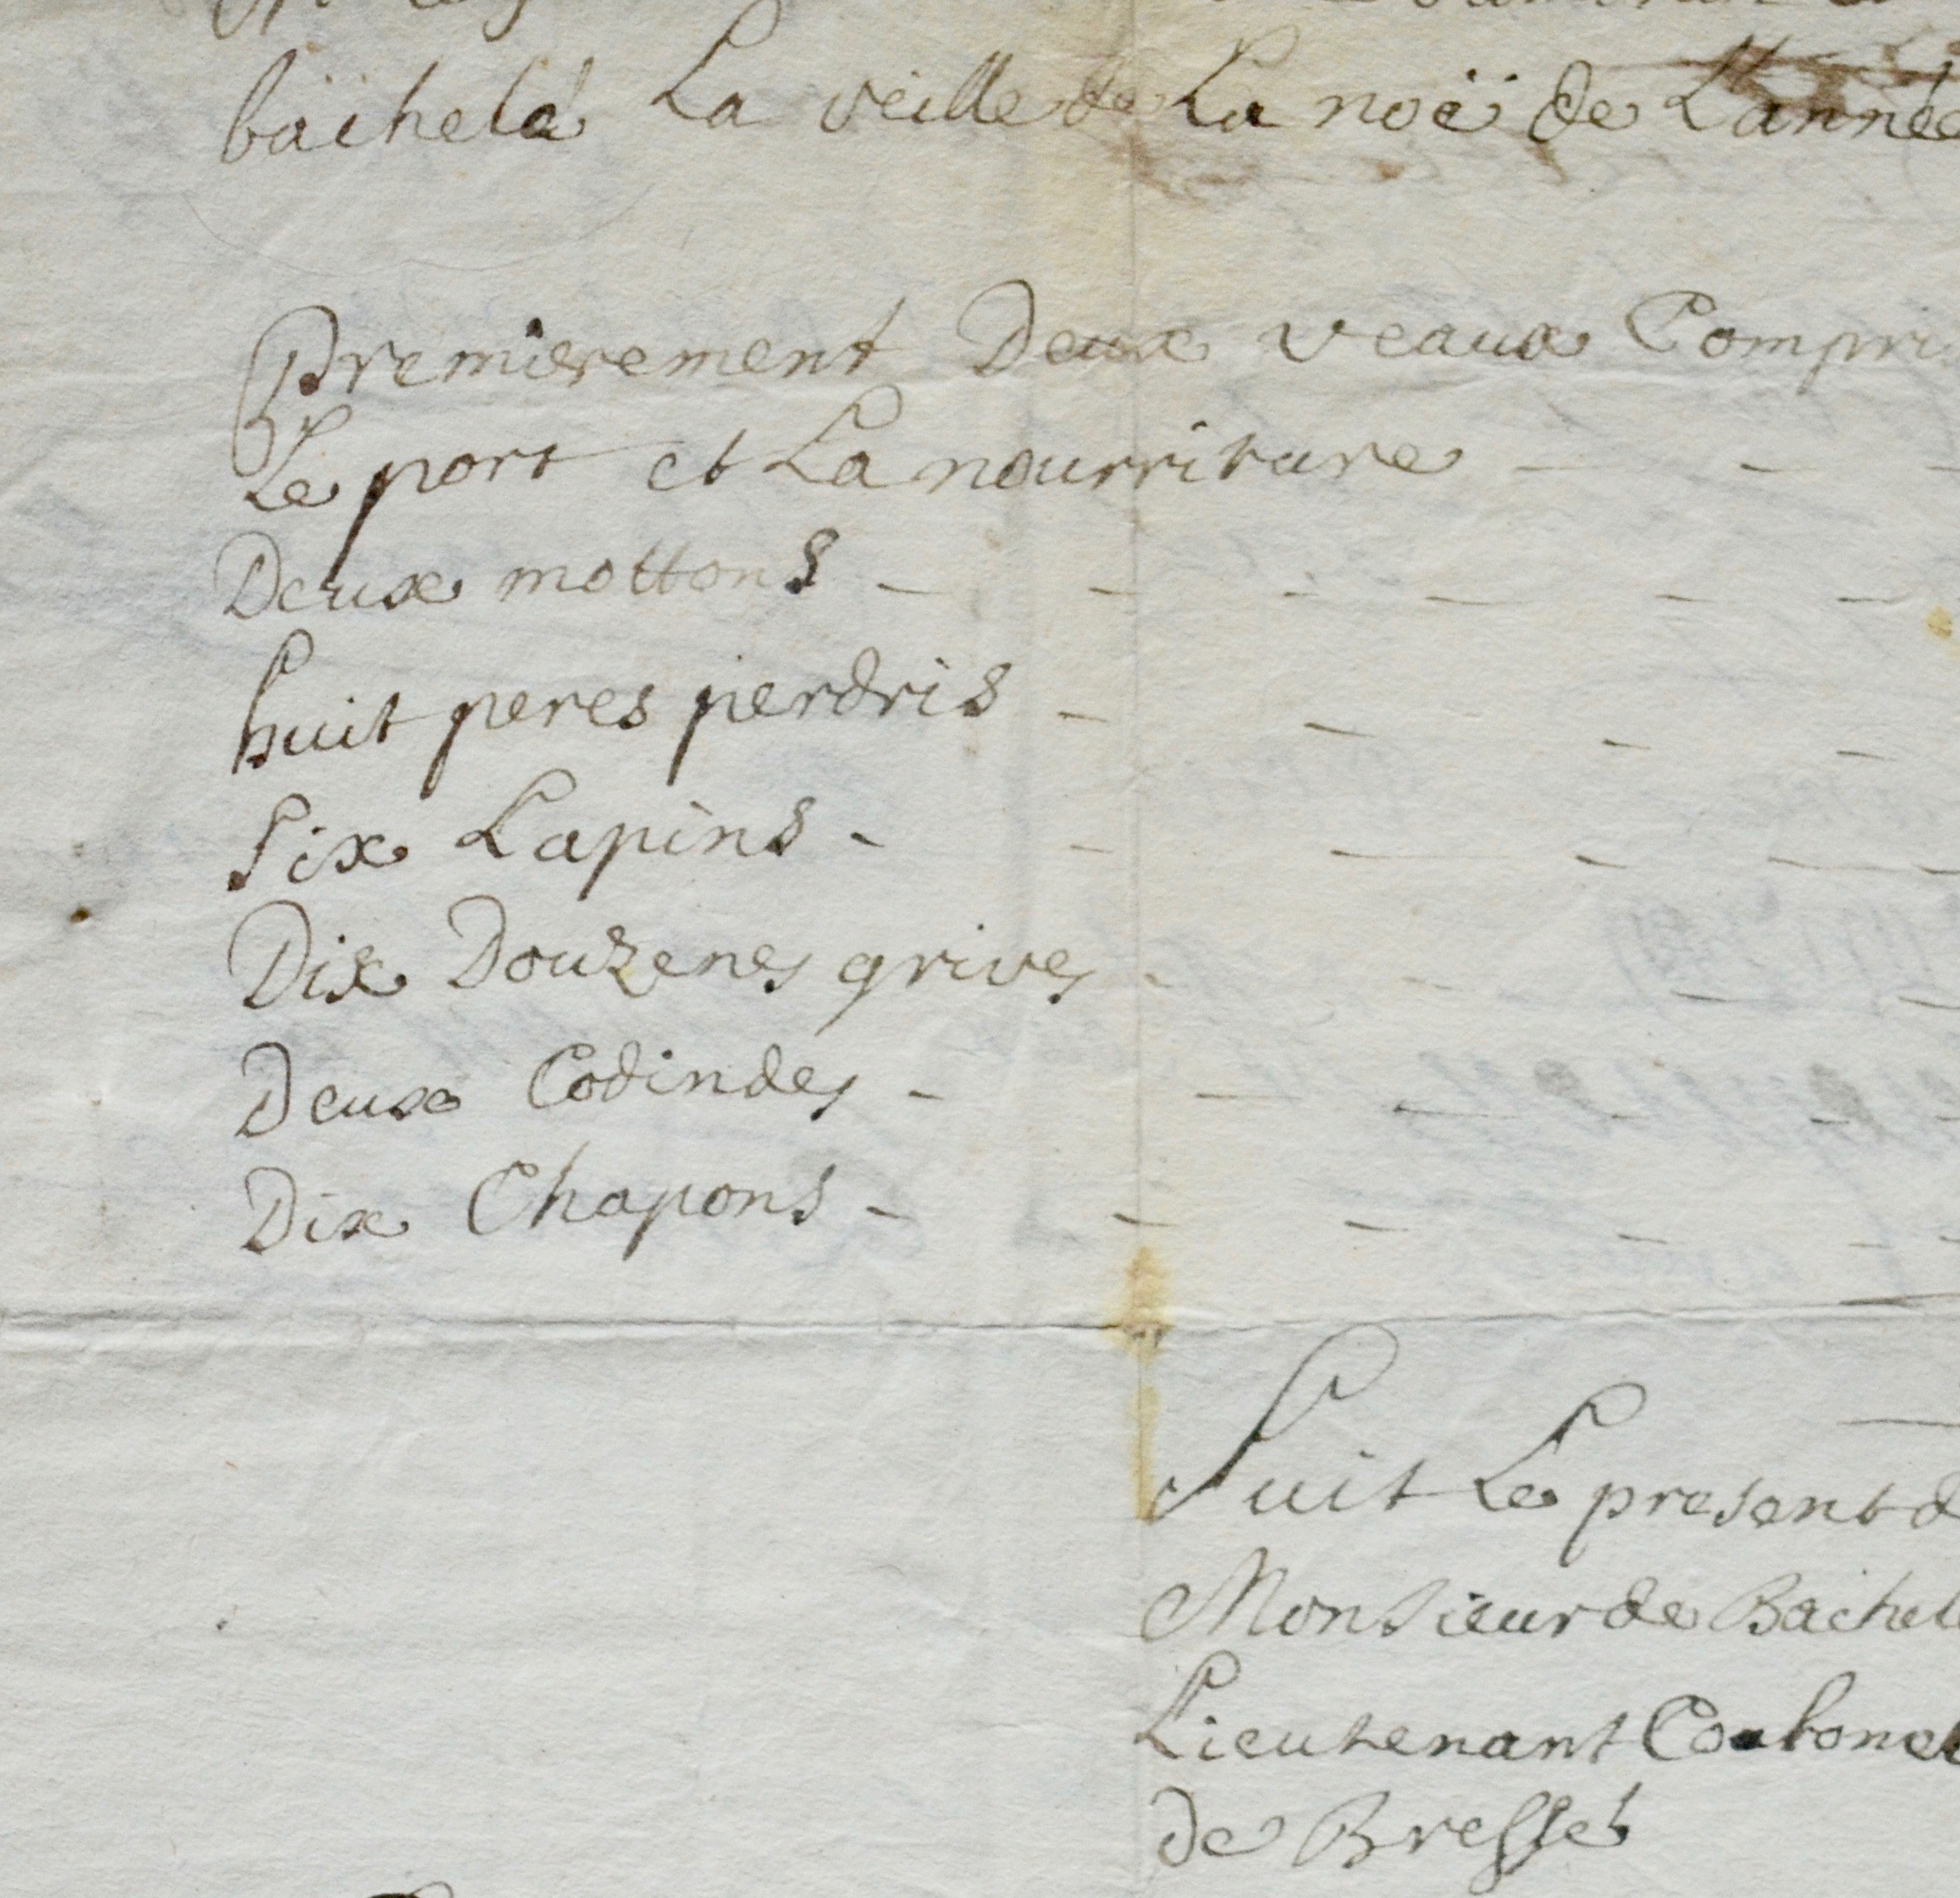 bachela La veille de La noë de L'année
Premierement Deux veaux Compris
Le port et La nourriture
Deux mottons
huit peres perdris
Six Lapins
Dix Douzenes grives
Deux Codindes
Dix Chapons
Suit Le present d
Monsieur de Bachel
Lieutenant Coulonel
de Bresse